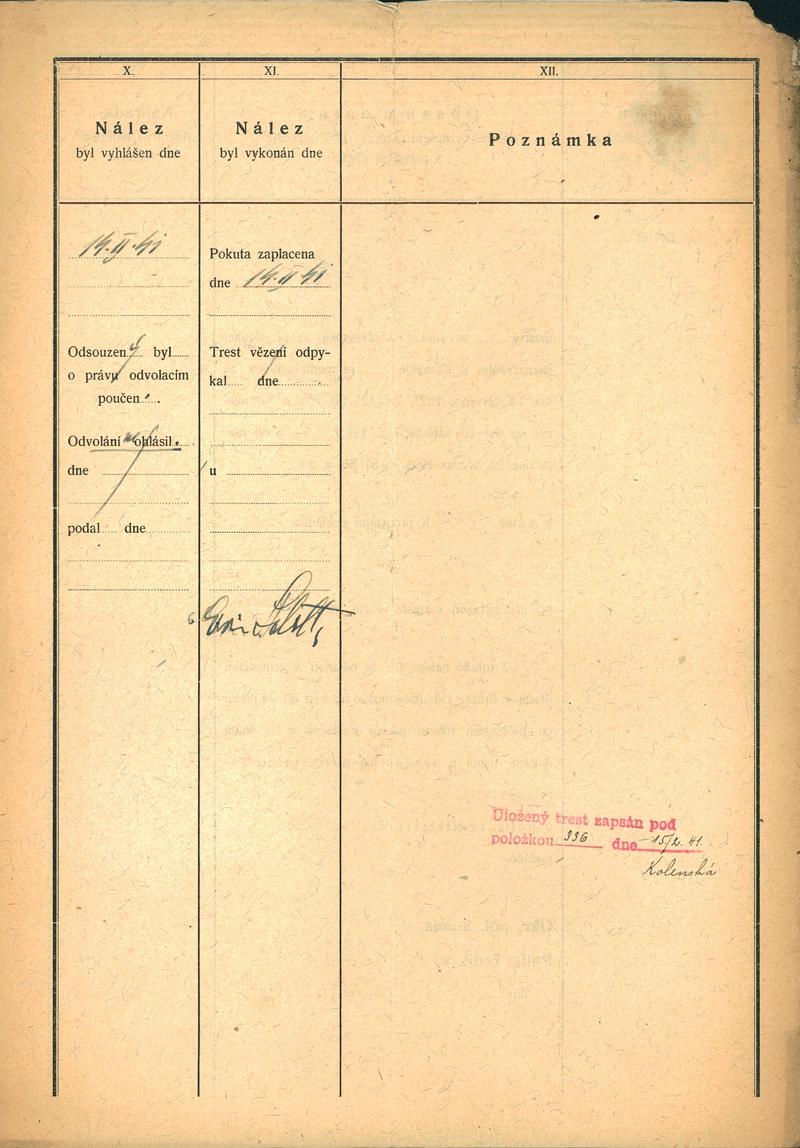 X.
Nález
byl vyhlášen dne
14.II.41
Odsouzený byl
o právu odvolacím
poučen.
Odvolání neohlásil.
dne
podal dne
XI.
Nález
byl vykonán dne
Pokuta zaplacena
dne 14.II.41
Trest vězení odpy-
kal dne
u
XII.
Poznámka
Uložený trest zapsán pod
položkou 336 dne 15/2.41.
Kolenská